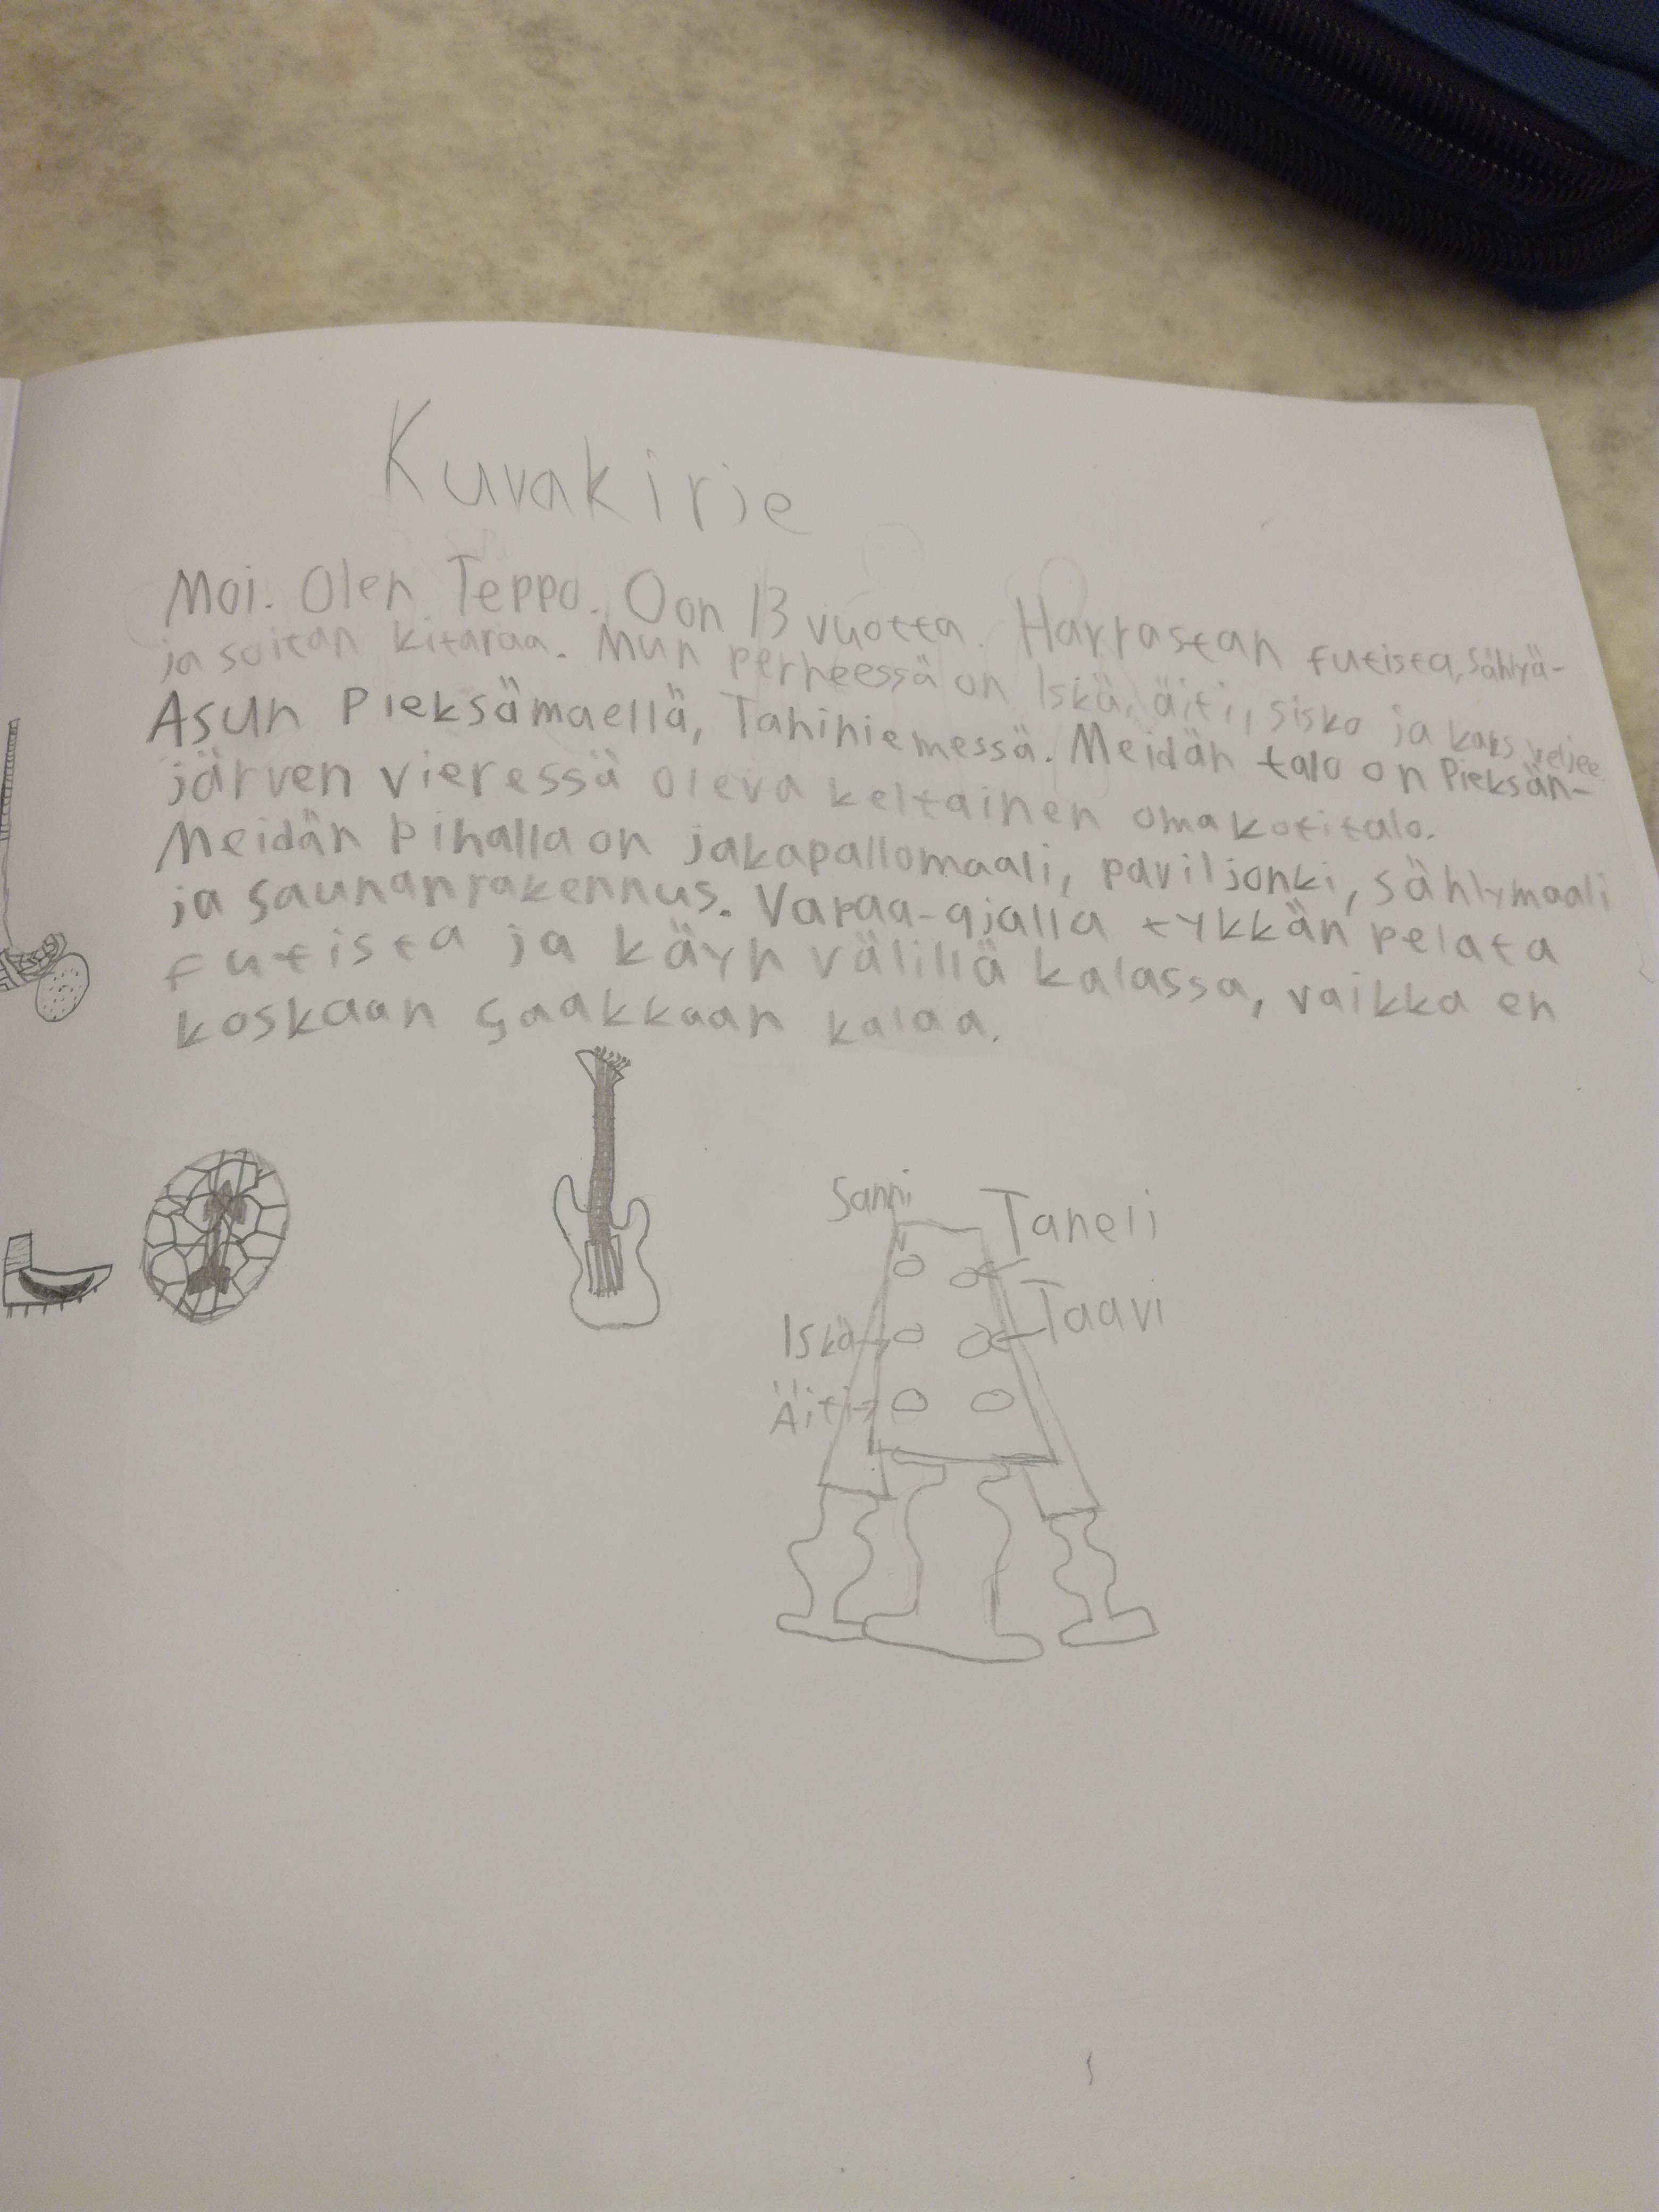 Kuvakirje
Moi. Olen Teppo. Oon 13 vuotta. Harrastan futista, sählyä-
ja soitan kitaraa. Mun perheessä on Iskä, äiti, sisko ja kaks veljee.
Asun Pieksämaellä, Tahiniemessä. Meidän talo on Pieksän-
järven vieressä oleva keltainen omakotitalo.
Meidän pihalla on jakapallomaali, paviljonki, sählymaali
ja saunanrakennus. Vapaa-ajalla tykkän pelata
futista ja käyn välillä kalassa, vaikka en
koskaan saakkaan kalaa.
Sanni
Taneli
Taavi
Iskä
Äiti